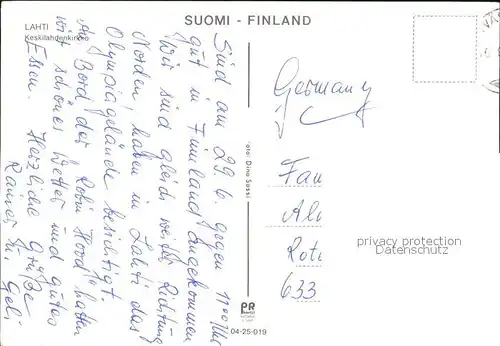 SUOMI - FINLAND
LAHTI
Keskilahdenkirkko
Sind am 29.6. gegen 11⁰⁰ Uhr
gut in Finnland angekommen
Wir sind gleich weiter Richtung
Norden, haben in Lahti das
Olympiagelände besichtigt.
An Bord der Robin Hood hatten
wir schönes Wetter und gutes
Essen. Herzliche Grüße
Rainer u. Geli
Foto: Dino Sassi
PR
04-25-019
Germany
Fam
Al
Rote
633
privacy protection
Datenschutz